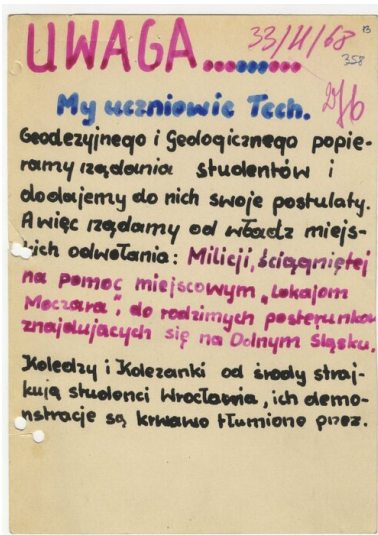 UWAGA........ 33/II/68
358
My uczniowie Tech.
Geodezyjnego i Geologicznego popie-
ramy rządania studentów i
dodajemy do nich swoje postulaty.
A więc rządamy od władz miejs-
kich odwołania: Milicji, ściągniętej
na pomoc miejscowym „Lokajom
Moczara”, do rodzimych posterunków
znajdujących się na Dolnym Śląsku.
Koledzy i Koleżanki od środy straj-
kują studenci Wrocławia, ich demo-
nstracje są krwawo tłumione przez.